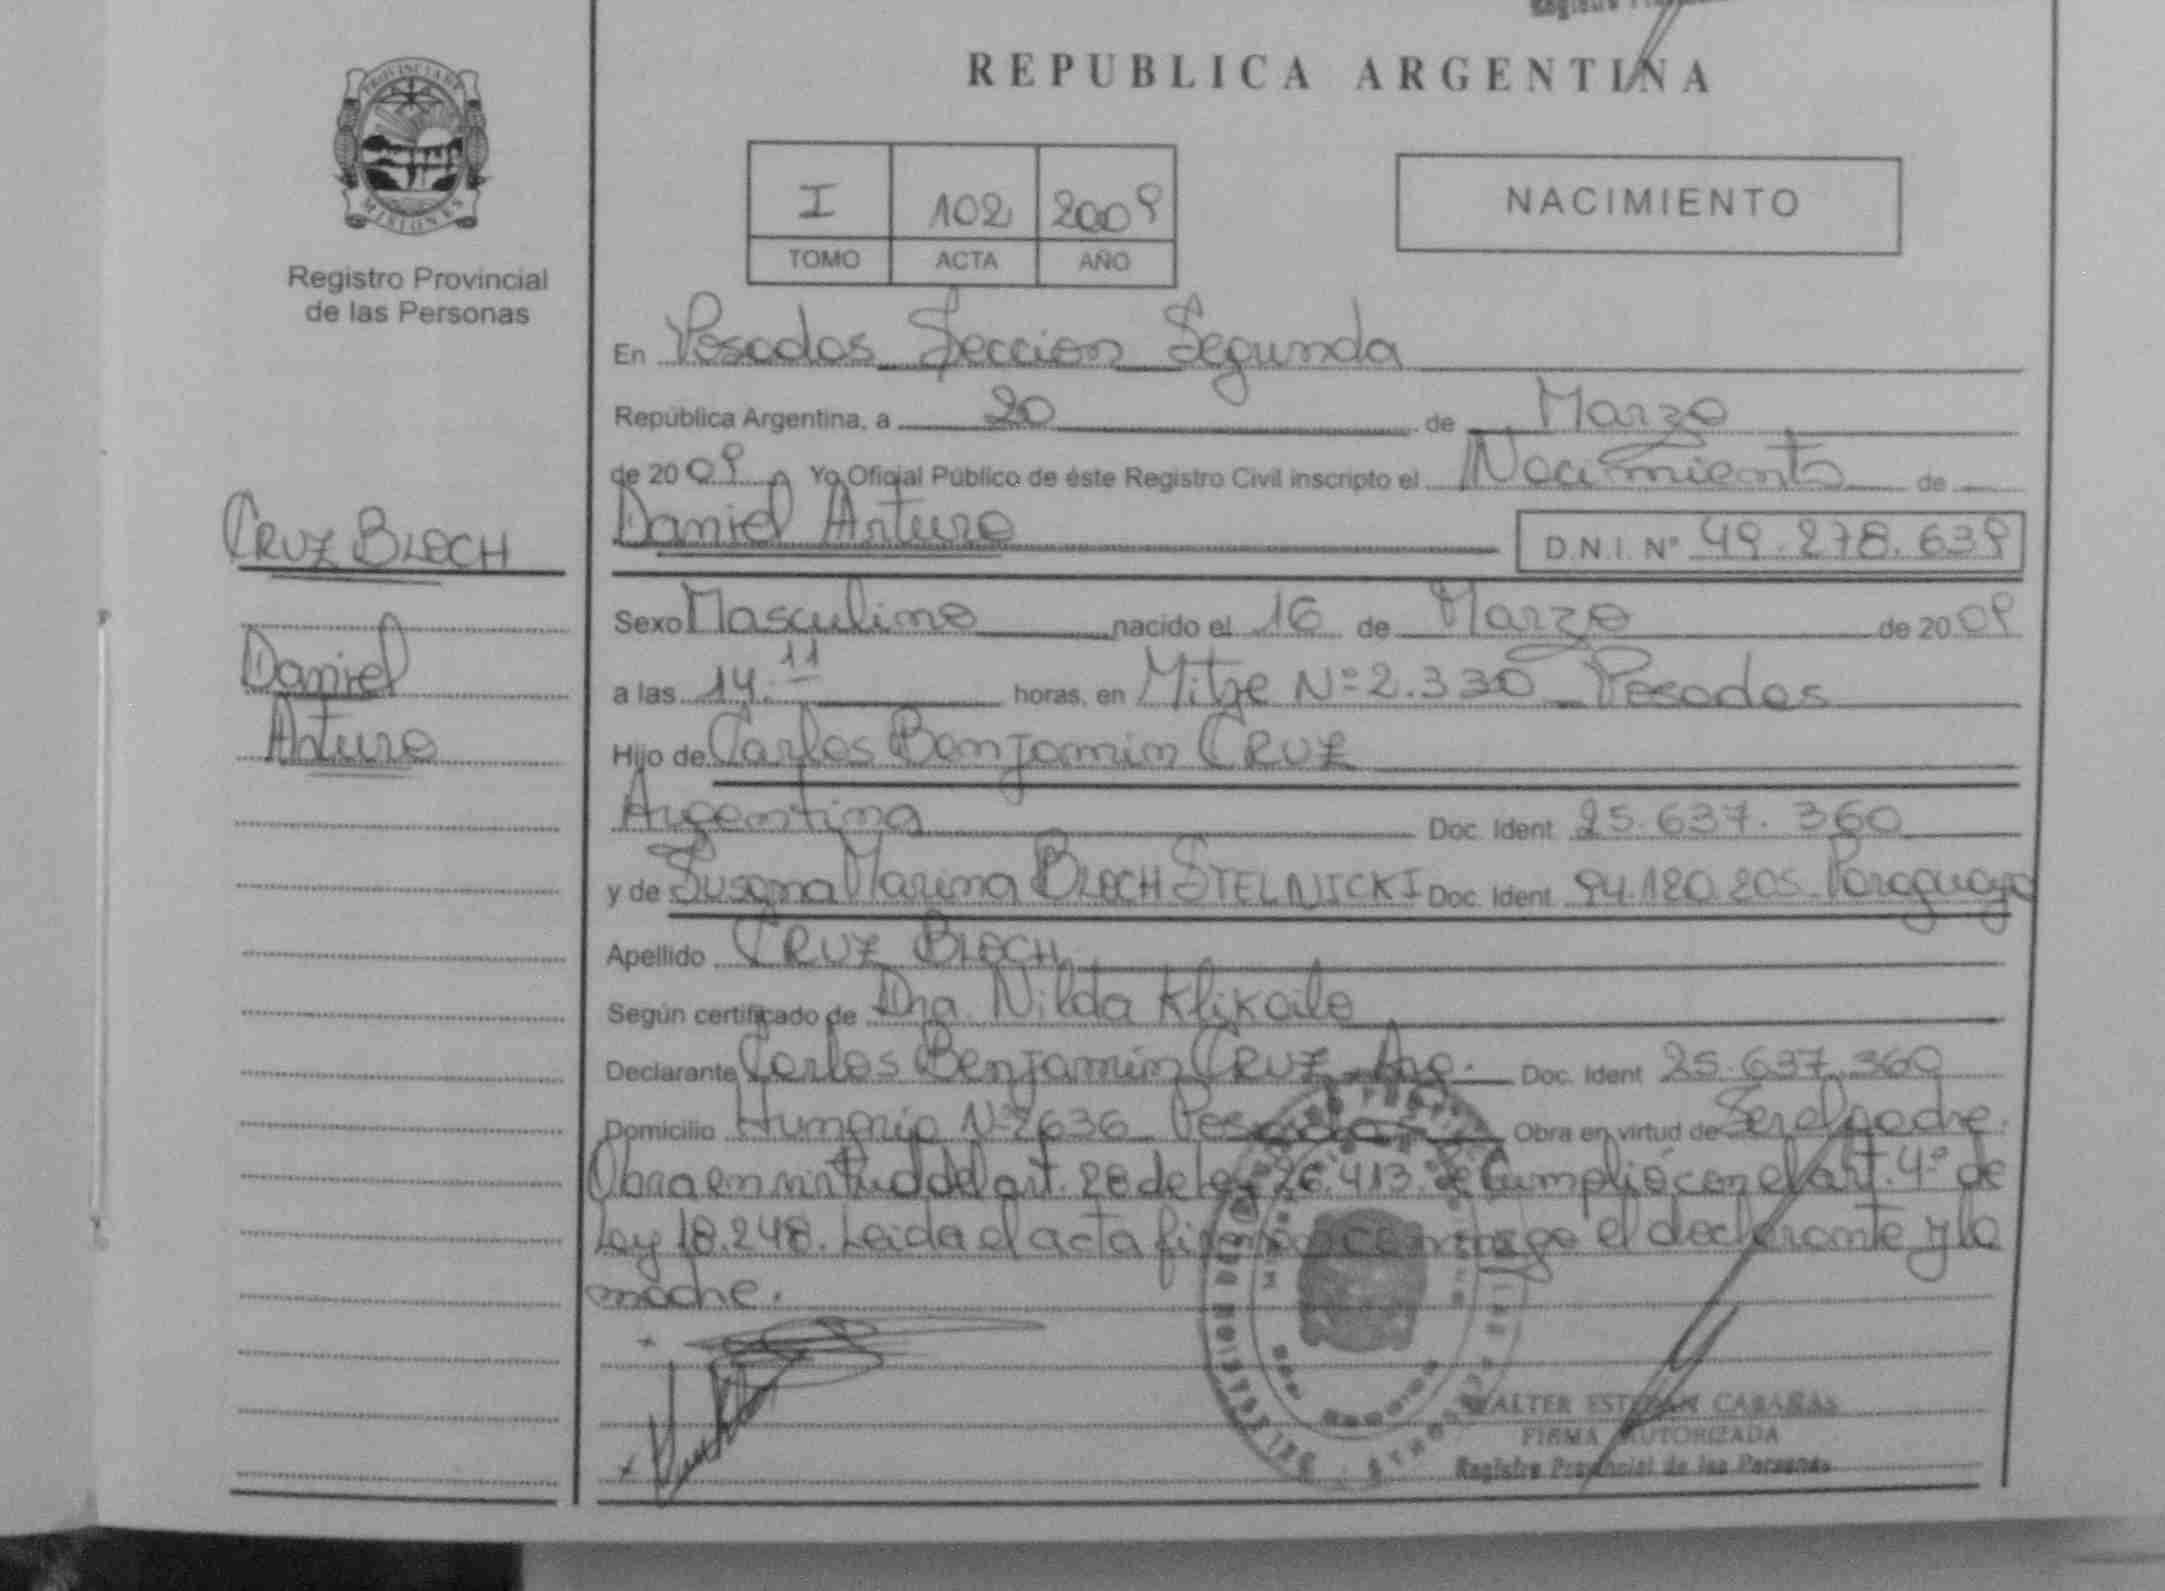 Registro
REPUBLICA ARGENTINA
PROVINCIA DE
MISIONES
Registro Provincial
de las Personas
I 102 2009
TOMO ACTA AÑO
NACIMIENTO
En Posadas Seccion Segunda
República Argentina, a 20 de Marzo
de 2009 Yo Oficial Público de éste Registro Civil inscripto el Nacimiento de
CRUZ BLOCH
Daniel Arturo D.N.I. Nº 49.278.639
Sexo Masculino nacido el 16 de Marzo de 2009
Daniel
a las 14.11 horas, en Mitre Nº 2.330 Posadas
Arturo
Hijo de Carlos Benjamin CRUZ
Argentina Doc. Ident. 25.637.360
y de Susana Marina BLOCH STELNICKI Doc. Ident. 94.180.205 Paraguaya
Apellido CRUZ BLOCH
Según certificado de Dra. Nilda Klikailo
Declarante Carlos Benjamin CRUZ Arg. Doc. Ident 25.637.360
Domicilio Hungria Nº 2636 Posadas Obra en virtud de Ser el padre.
Obra en virtud del art. 28 de Ley 26.413. Se Cumplió con el art. 4º de
Ley 18.248. Leida el acta firman conmigo el declarante y la
madre.
WALTER ESTEBAN CABAÑAS
FIRMA AUTORIZADA
Registro Provincial de las Personas